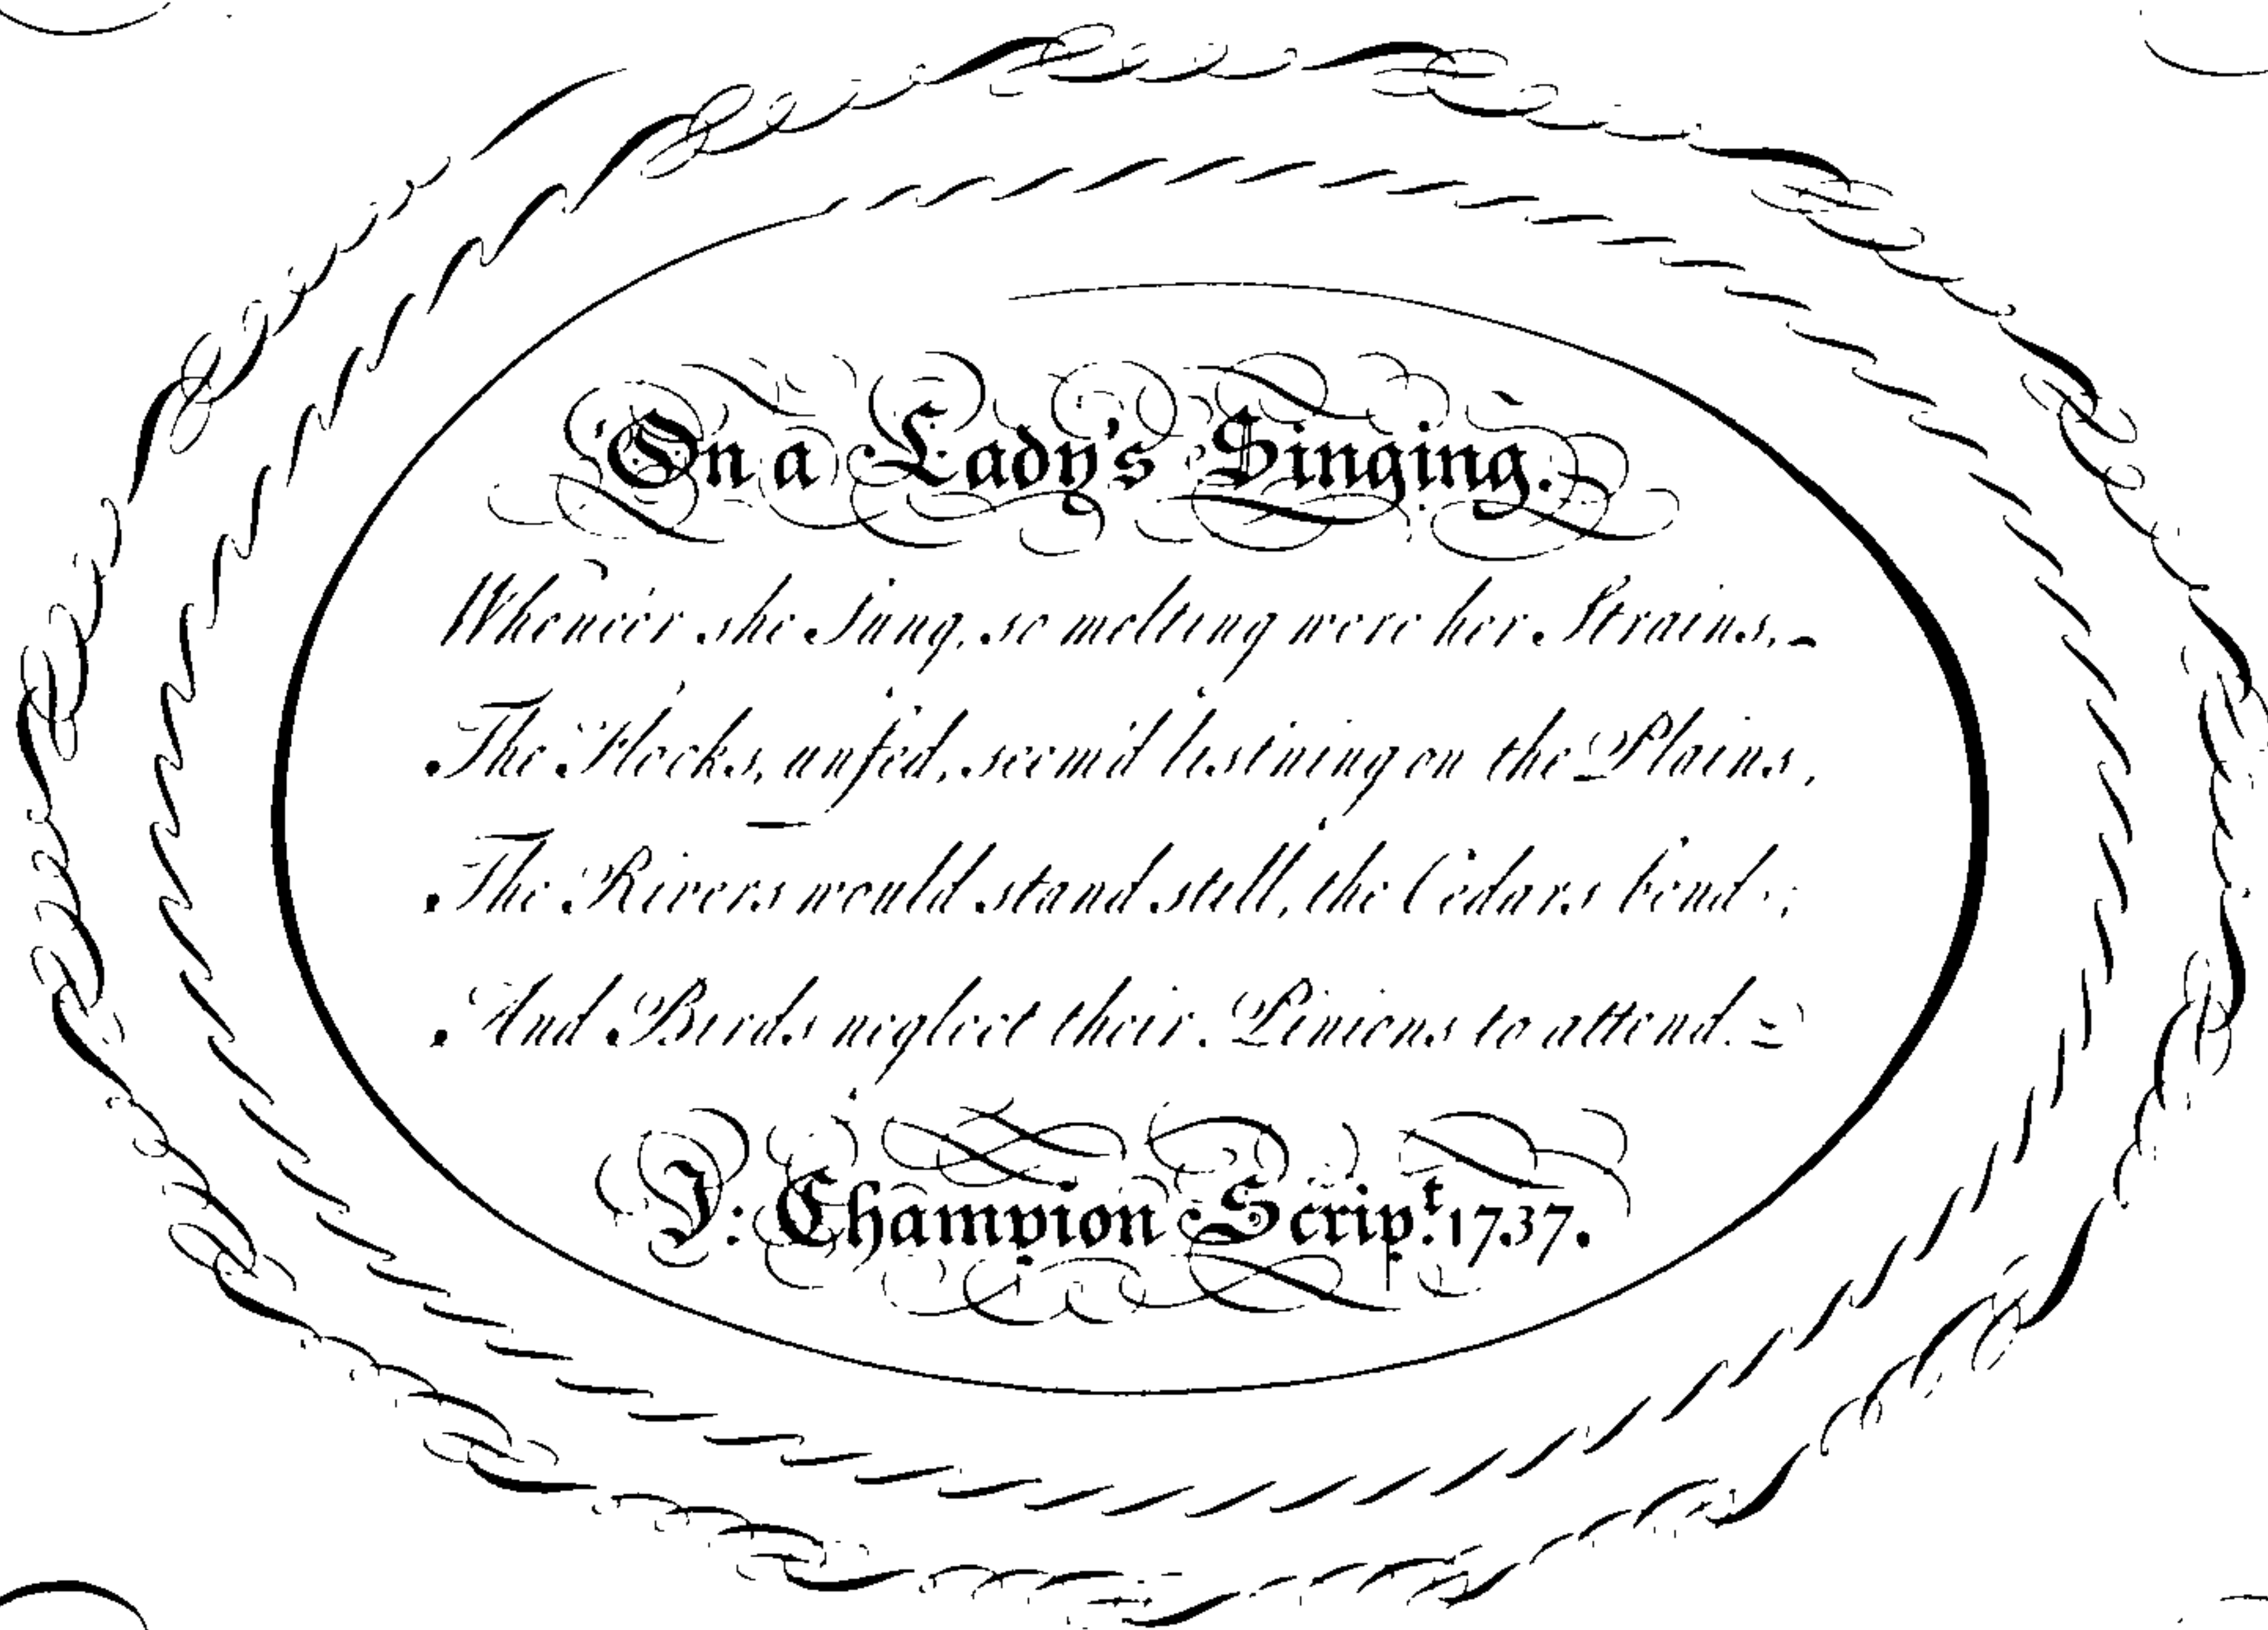 On a Lady's Singing.
Whene'er she Sung, so melting were her Strains,
The Flocks, unfed, seem'd list'ning on the Plains,
The Rivers would stand still, the Cedars bend;
And Birds neglect their Pinions to attend.
J: Champion Scrip.t 1737.